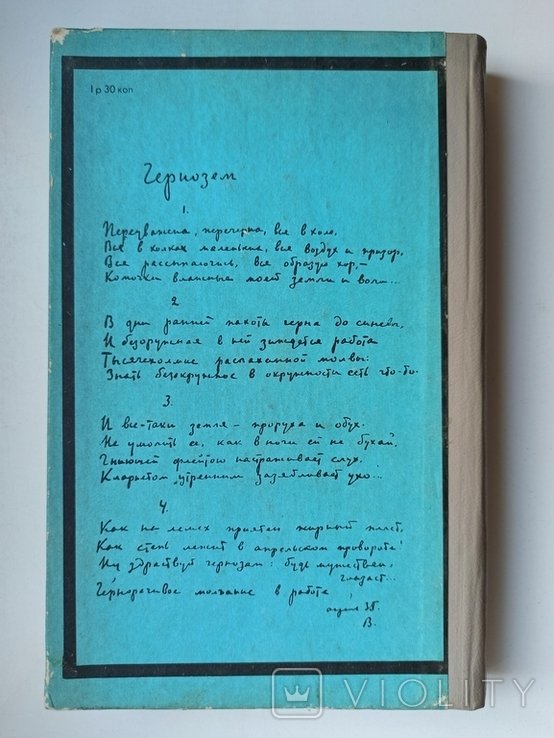 1 р 30 коп
Чернозем
1.
Переуважена, перечерна, вся в холе,
Вся в холках маленьких, вся воздух и призор,
Вся рассыпаючись, вся образуя хор,—
Комочки влажные моей земли и воли...
2
В дни ранней пахоты черна до синевы,
И безоружная в ней зиждется работа
Тысячехолмие распаханной молвы:
Знать безокружное в окружности есть что-то.
3.
И все-таки земля — проруха и обух.
Не умолить ее, как в ноги ей не бухай,
Гниющей флейтою настраживает слух,
Кларнетом утренним зазябливает ухо...
4.
Как на лемех приятен жирный пласт,
Как степь лежит в апрельском провороте!
Ну здравствуй чернозем: будь мужествен,
глазаст...
Черноречивое молчание в работе
апрель 35г.
В.
VIOLITY